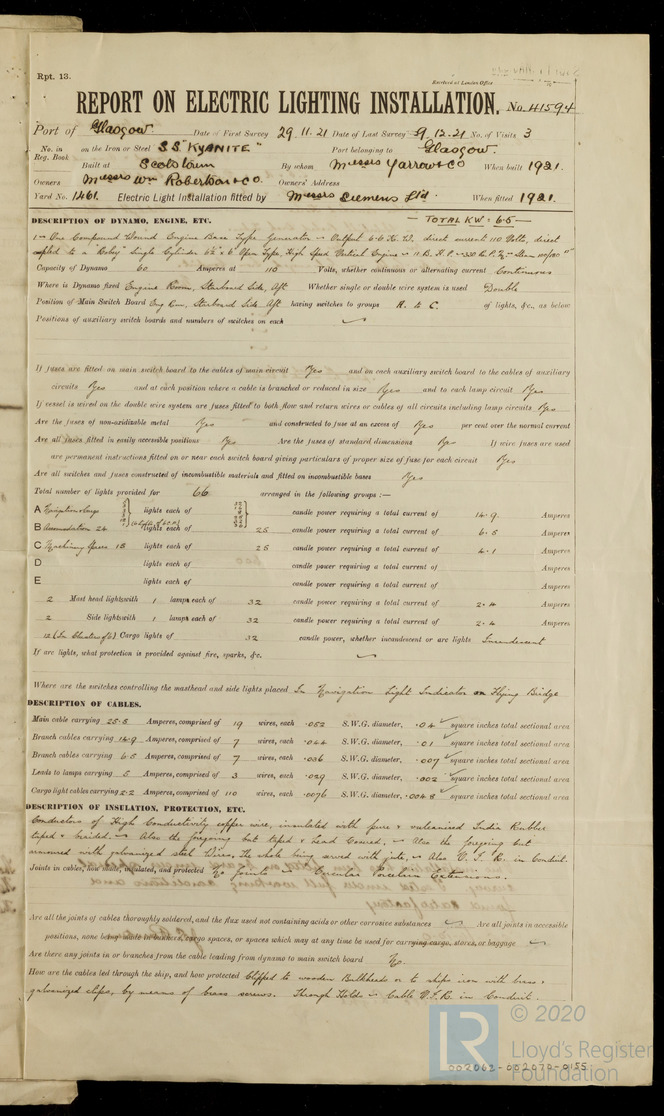 Rpt. 13.
Received at London Office
REPORT ON ELECTRIC LIGHTING INSTALLATION. No. 41594
Port of Glasgow Date of First Survey 29.11.21 Date of Last Survey 9.12.21 No. of Visits 3
No. in Reg. Book on the Iron or Steel S.S. "KYANITE" Port belonging to Glasgow.
Built at Scotstoun By whom Messrs Yarrow & Co When built 1921.
Owners Messrs Wm Robertson & Co. Owners' Address
Yard No. 1461. Electric Light Installation fitted by Messrs Siemens Ltd. When fitted 1921.
DESCRIPTION OF DYNAMO, ENGINE, ETC. — TOTAL KW = 6.5 —
One Compound Wound Engine Base Type Generator Output 6.6 K.W. direct current 110 Volts, direct
coupled to a Single Cylinder Open Type, High Speed Vertical Engine
Capacity of Dynamo 60 Amperes at 110 Volts, whether continuous or alternating current Continuous
Where is Dynamo fixed Engine Room, Starboard Side, Aft Whether single or double wire system is used Double
Position of Main Switch Board Eng Rm, Starboard Side, Aft having switches to groups A. to C. of lights, &c., as below
Positions of auxiliary switch boards and numbers of switches on each
If fuses are fitted on main switch board to the cables of main circuit Yes and on each auxiliary switch board to the cables of auxiliary
circuits Yes and at each position where a cable is branched or reduced in size Yes and to each lamp circuit Yes
If vessel is wired on the double wire system are fuses fitted to both flow and return wires or cables of all circuits including lamp circuits Yes
Are the fuses of non-oxidizable metal Yes and constructed to fuse at an excess of Yes per cent over the normal current
Are all fuses fitted in easily accessible positions Yes Are the fuses of standard dimensions Yes If wire fuses are used
are permanent instructions fitted on or near each switch board giving particulars of proper size of fuse for each circuit Yes
Are all switches and fuses constructed of incombustible materials and fitted on incombustible bases Yes
Total number of lights provided for 66 arranged in the following groups :—
A Navigation & Cargo lights each of candle power requiring a total current of 14.9. Amperes
B Accomodation 24 lights each of 25 candle power requiring a total current of 6.5 Amperes
C Machinery Spaces 15 lights each of 25 candle power requiring a total current of 4.1 Amperes
D lights each of candle power requiring a total current of Amperes
E lights each of candle power requiring a total current of Amperes
2 Mast head lights with 1 lamps each of 32 candle power requiring a total current of 2.4 Amperes
2 Side lights with 1 lamps each of 32 candle power requiring a total current of 2.4 Amperes
12 (In Clusters of 6) Cargo lights of 32 candle power, whether incandescent or arc lights Incandescent
If arc lights, what protection is provided against fire, sparks, &c.
Where are the switches controlling the masthead and side lights placed In Navigation Light Indicator on Flying Bridge
DESCRIPTION OF CABLES.
Main cable carrying 25.5 Amperes, comprised of 19 wires, each .052 S.W.G. diameter, .04 square inches total sectional area
Branch cables carrying 14.9 Amperes, comprised of 7 wires, each .044 S.W.G. diameter, .01 square inches total sectional area
Branch cables carrying 6.5 Amperes, comprised of 7 wires, each .036 S.W.G. diameter, .007 square inches total sectional area
Leads to lamps carrying 5 Amperes, comprised of 3 wires, each .029 S.W.G. diameter, .002 square inches total sectional area
Cargo light cables carrying 2.2 Amperes, comprised of 110 wires, each .0076 S.W.G. diameter, .0048 square inches total sectional area
DESCRIPTION OF INSULATION, PROTECTION, ETC.
Conductors of High Conductivity copper wire, insulated with pure & vulcanised India Rubber
taped & braided. Also the foregoing but taped & Lead Covered. Also the foregoing but
armoured with galvanized steel Wires, the whole being served with jute. Also V.I.R. in Conduit.
Joints in cables, how made, insulated, and protected No Joints Porcelain
Are all the joints of cables thoroughly soldered, and the flux used not containing acids or other corrosive substances Are all joints in accessible
positions, none being made in bunkers, cargo spaces, or spaces which may at any time be used for carrying cargo, stores, or baggage
Are there any joints in or branches from the cable leading from dynamo to main switch board No.
How are the cables led through the ship, and how protected Clipped to wooden Bulkheads or to ships iron with brass &
galvanized clips, by means of brass screws. Through Holds Cable V.I.R. in Conduit.
© 2020
LR
Lloyd's Register
Foundation
002063-002070-0155